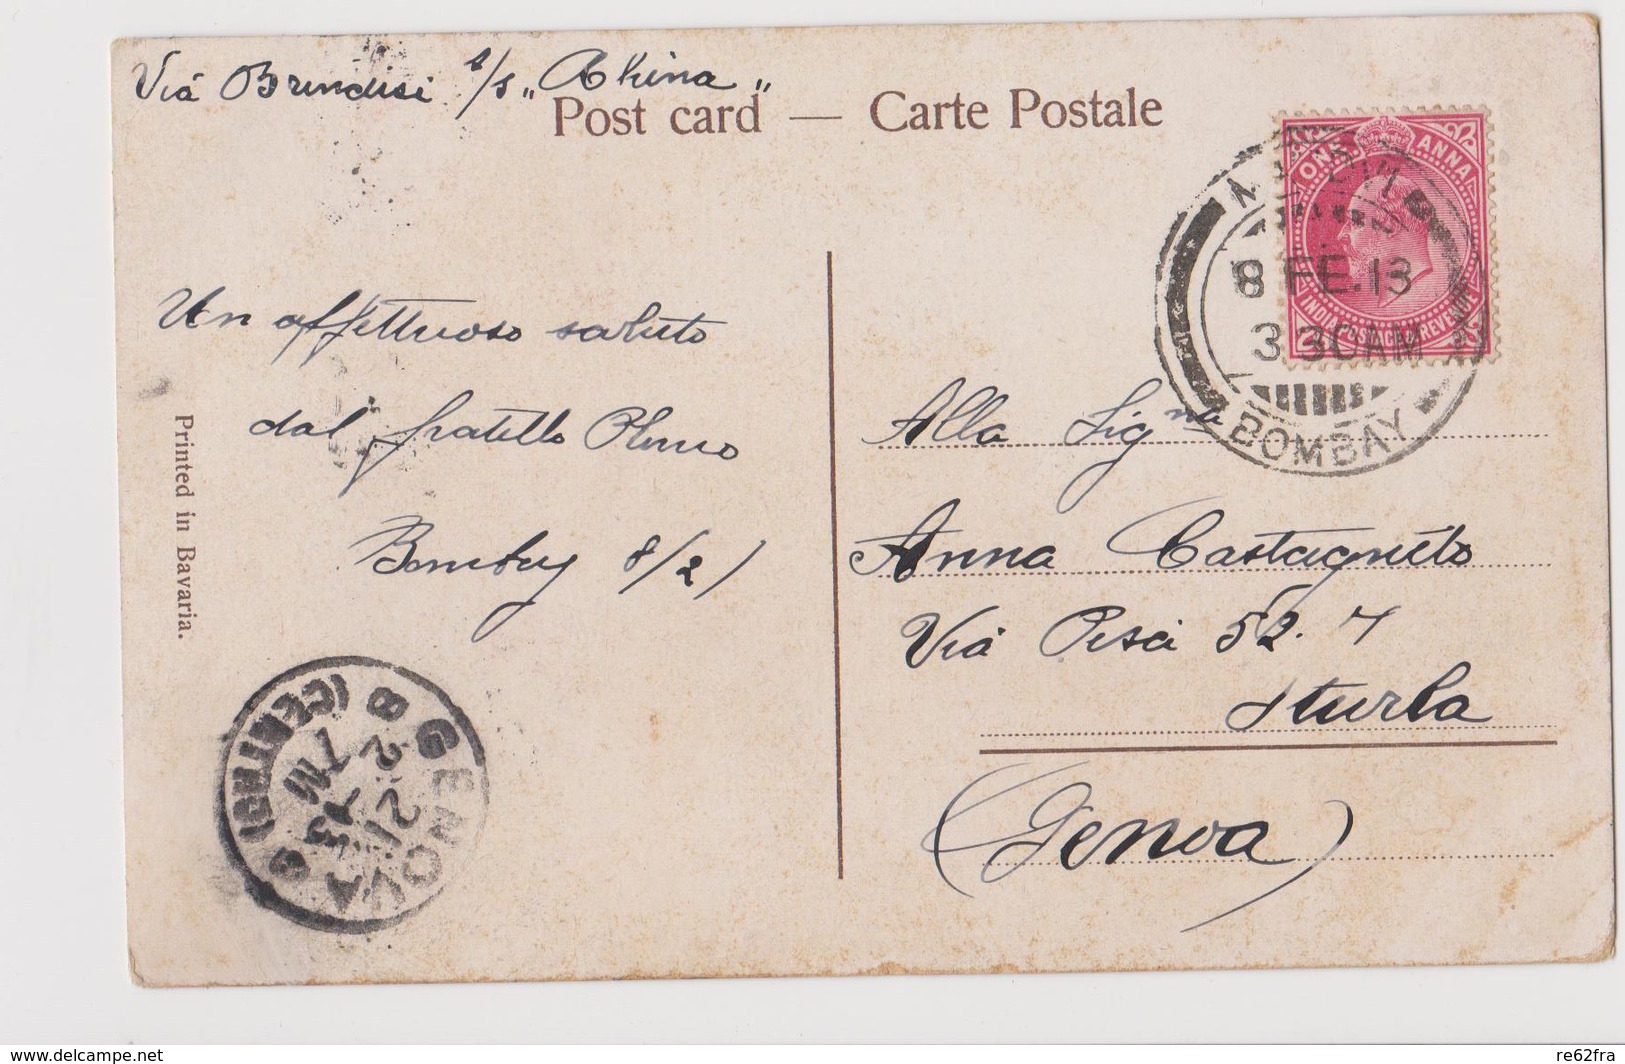 Via Brindisi s/s „
Post card — Carte Postale
ONE ANNA
INDIA POSTAGE & REVENUE
8 FE.13
3 30AM
BOMBAY
Un affettuoso saluto
dal fratello
Bombay 8/2/
Printed in Bavaria.
Alla Sigra
Anna Castagneto
Via Pisa 52. 7
Sturla
(Genoa)
GENOVA 9 (CENTRO) 8
21 2 13
delcampe.net
re62fra